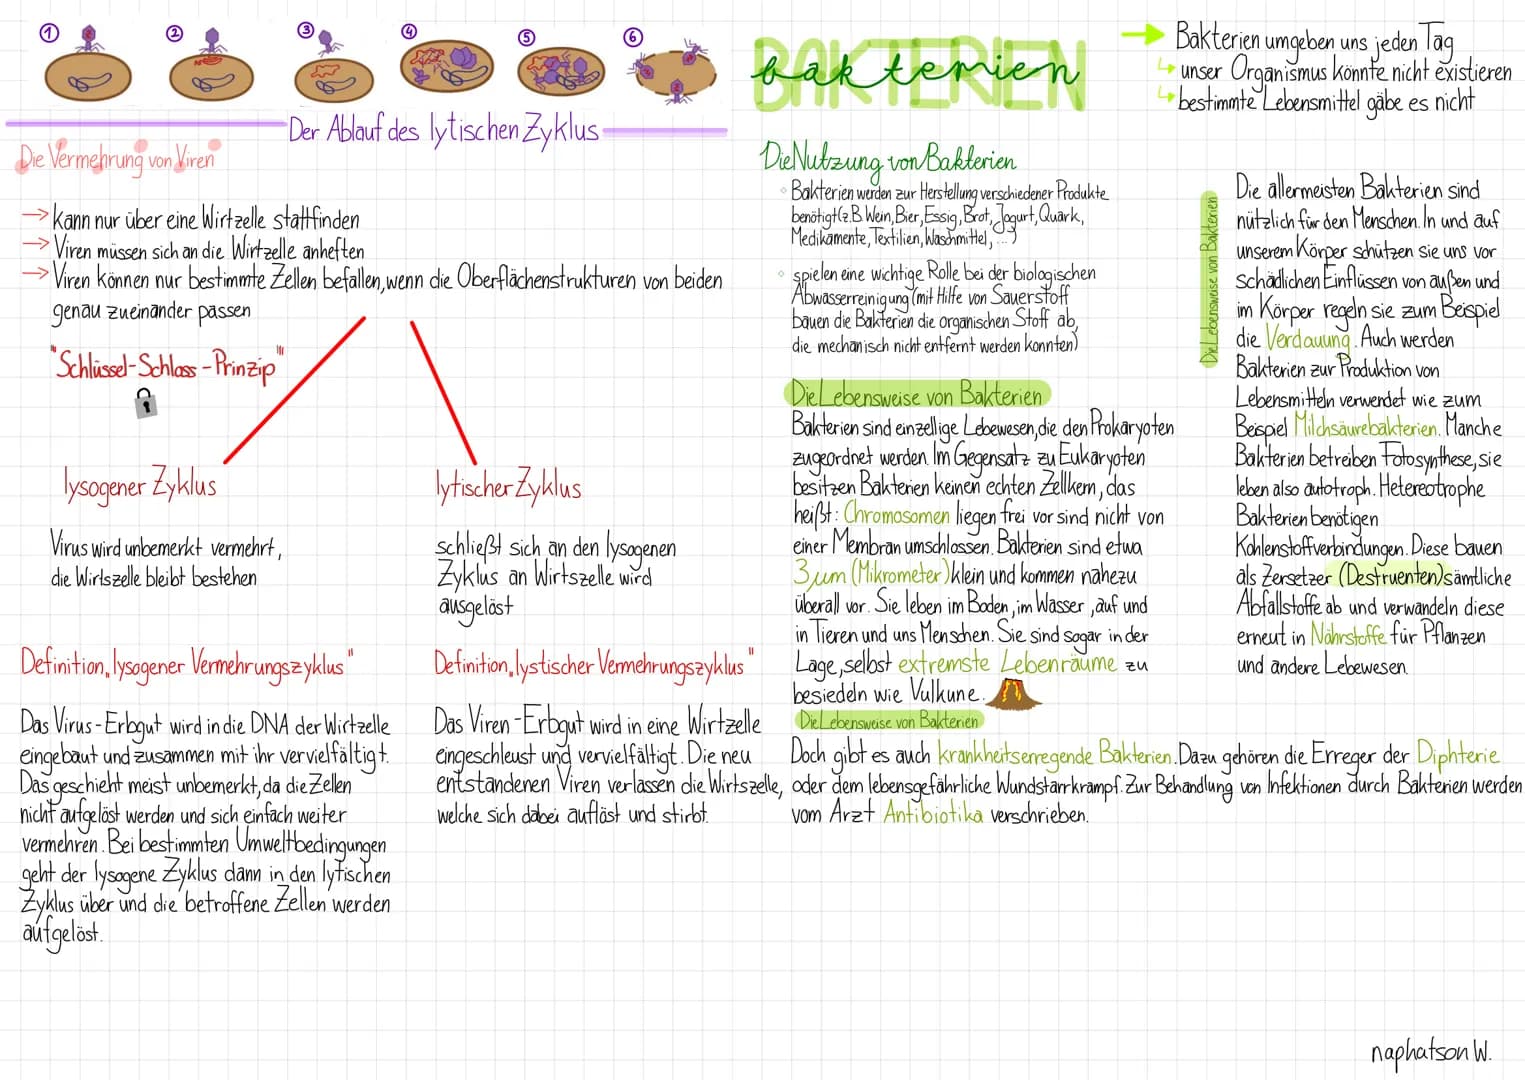 ① ② ③ ④ ⑤ ⑥
Der Ablauf des lytischen Zyklus
Die Vermehrung von Viren
→ kann nur über eine Wirtzelle stattfinden
→ Viren müssen sich an die Wirtzelle anheften
→ Viren können nur bestimmte Zellen befallen, wenn die Oberflächenstrukturen von beiden
genau zueinander passen
"Schlüssel-Schloss-Prinzip"
lysogener Zyklus
Virus wird unbemerkt vermehrt,
die Wirtszelle bleibt bestehen
lytischer Zyklus
schließt sich an den lysogenen
Zyklus an Wirtszelle wird
ausgelöst
Definition „lysogener Vermehrungszyklus"
Das Virus-Erbgut wird in die DNA der Wirtzelle
eingebaut und zusammen mit ihr vervielfältigt.
Das geschieht meist unbemerkt, da die Zellen
nicht aufgelöst werden und sich einfach weiter
vermehren. Bei bestimmten Umweltbedingungen
geht der lysogene Zyklus dann in den lytischen
Zyklus über und die betroffene Zellen werden
aufgelöst.
Definition „lystischer Vermehrungszyklus"
Das Viren-Erbgut wird in eine Wirtzelle
eingeschleust und vervielfältigt. Die neu
entstandenen Viren verlassen die Wirtszelle,
welche sich dabei auflöst und stirbt.
BAKTERIEN
bakterien
→ Bakterien umgeben uns jeden Tag
↳ unser Organismus könnte nicht existieren
↳ bestimmte Lebensmittel gäbe es nicht
Die Nutzung von Bakterien
◦ Bakterien werden zur Herstellung verschiedener Produkte
benötigt (z.B. Wein, Bier, Essig, Brot, Jogurt, Quark,
Medikamente, Textilien, Waschmittel, ...)
◦ spielen eine wichtige Rolle bei der biologischen
Abwasserreinigung (mit Hilfe von Sauerstoff
bauen die Bakterien die organischen Stoff ab,
die mechanisch nicht entfernt werden konnten)
Die Lebensweise von Bakterien
Bakterien sind einzellige Lebewesen, die den Prokaryoten
zugeordnet werden. Im Gegensatz zu Eukaryoten
besitzen Bakterien keinen echten Zellkern, das
heißt: Chromosomen liegen frei vor sind nicht von
einer Membran umschlossen. Bakterien sind etwa
3 um (Mikrometer) klein und kommen nahezu
überall vor. Sie leben im Boden, im Wasser, auf und
in Tieren und uns Menschen. Sie sind sogar in der
Lage, selbst extremste Lebenräume zu
besiedeln wie Vulkune.
Die Lebensweise von Bakterien
Doch gibt es auch krankheitserregende Bakterien. Dazu gehören die Erreger der Diphterie
oder dem lebensgefährliche Wundstarrkrampf. Zur Behandlung von Infektionen durch Bakterien werden
vom Arzt Antibiotika verschrieben.
Die Lebensweise von Bakterien
Die allermeisten Bakterien sind
nützlich für den Menschen. In und auf
unserem Körper schützen sie uns vor
schädlichen Einflüssen von außen und
im Körper regeln sie zum Beispiel
die Verdauung. Auch werden
Bakterien zur Produktion von
Lebensmitteln verwendet wie zum
Beispiel Milchsäurebakterien. Manche
Bakterien betreiben Fotosynthese, sie
leben also autotroph. Hetereotrophe
Bakterien benötigen
Kohlenstoffverbindungen. Diese bauen
als Zersetzer (Destruenten) sämtliche
Abfallstoffe ab und verwandeln diese
erneut in Nährstoffe für Pflanzen
und andere Lebewesen.
naphatson W.